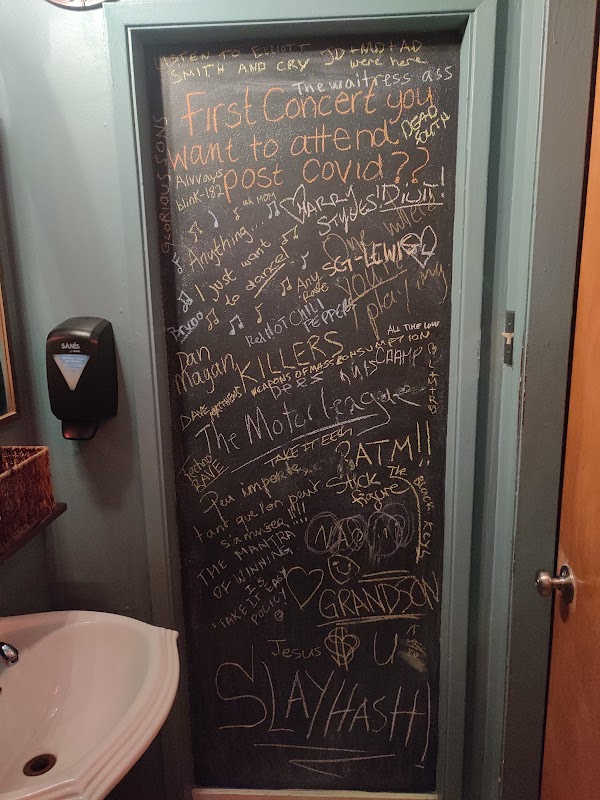 LISTEN TO ELLIOTT
SMITH AND CRY
JD + MD + AD
were here
The waitress ass
First Concert you
want to attend
post Covid??
DEAD
SOUTH
GLORIOUS SONS
Alvvays
blink-182
HARRY
STYLES!
DIUIT!
Anything...
I just want
to dance!
SGT-LEWIS
playing
Any
Bruno
Red HOT CHILI
PEPPERS
ALL TIME LOW
Dan
Magan
KILLERS
WEAPONS OF MASS CONSUMPTION
DAVE MATTHEWS
The Motorleague
TAKE IT EASY
RATM!!
RAVE
Peu importe
tant que l'on peut
s'amuser!!!!
Stick
figure
The
Black
Keys
THE MANTRA
OF WINNING
IS
"TAKE IT EASY
POLICY"
GRANDSON
Jesus
U
SLAYHASH!
SANIS